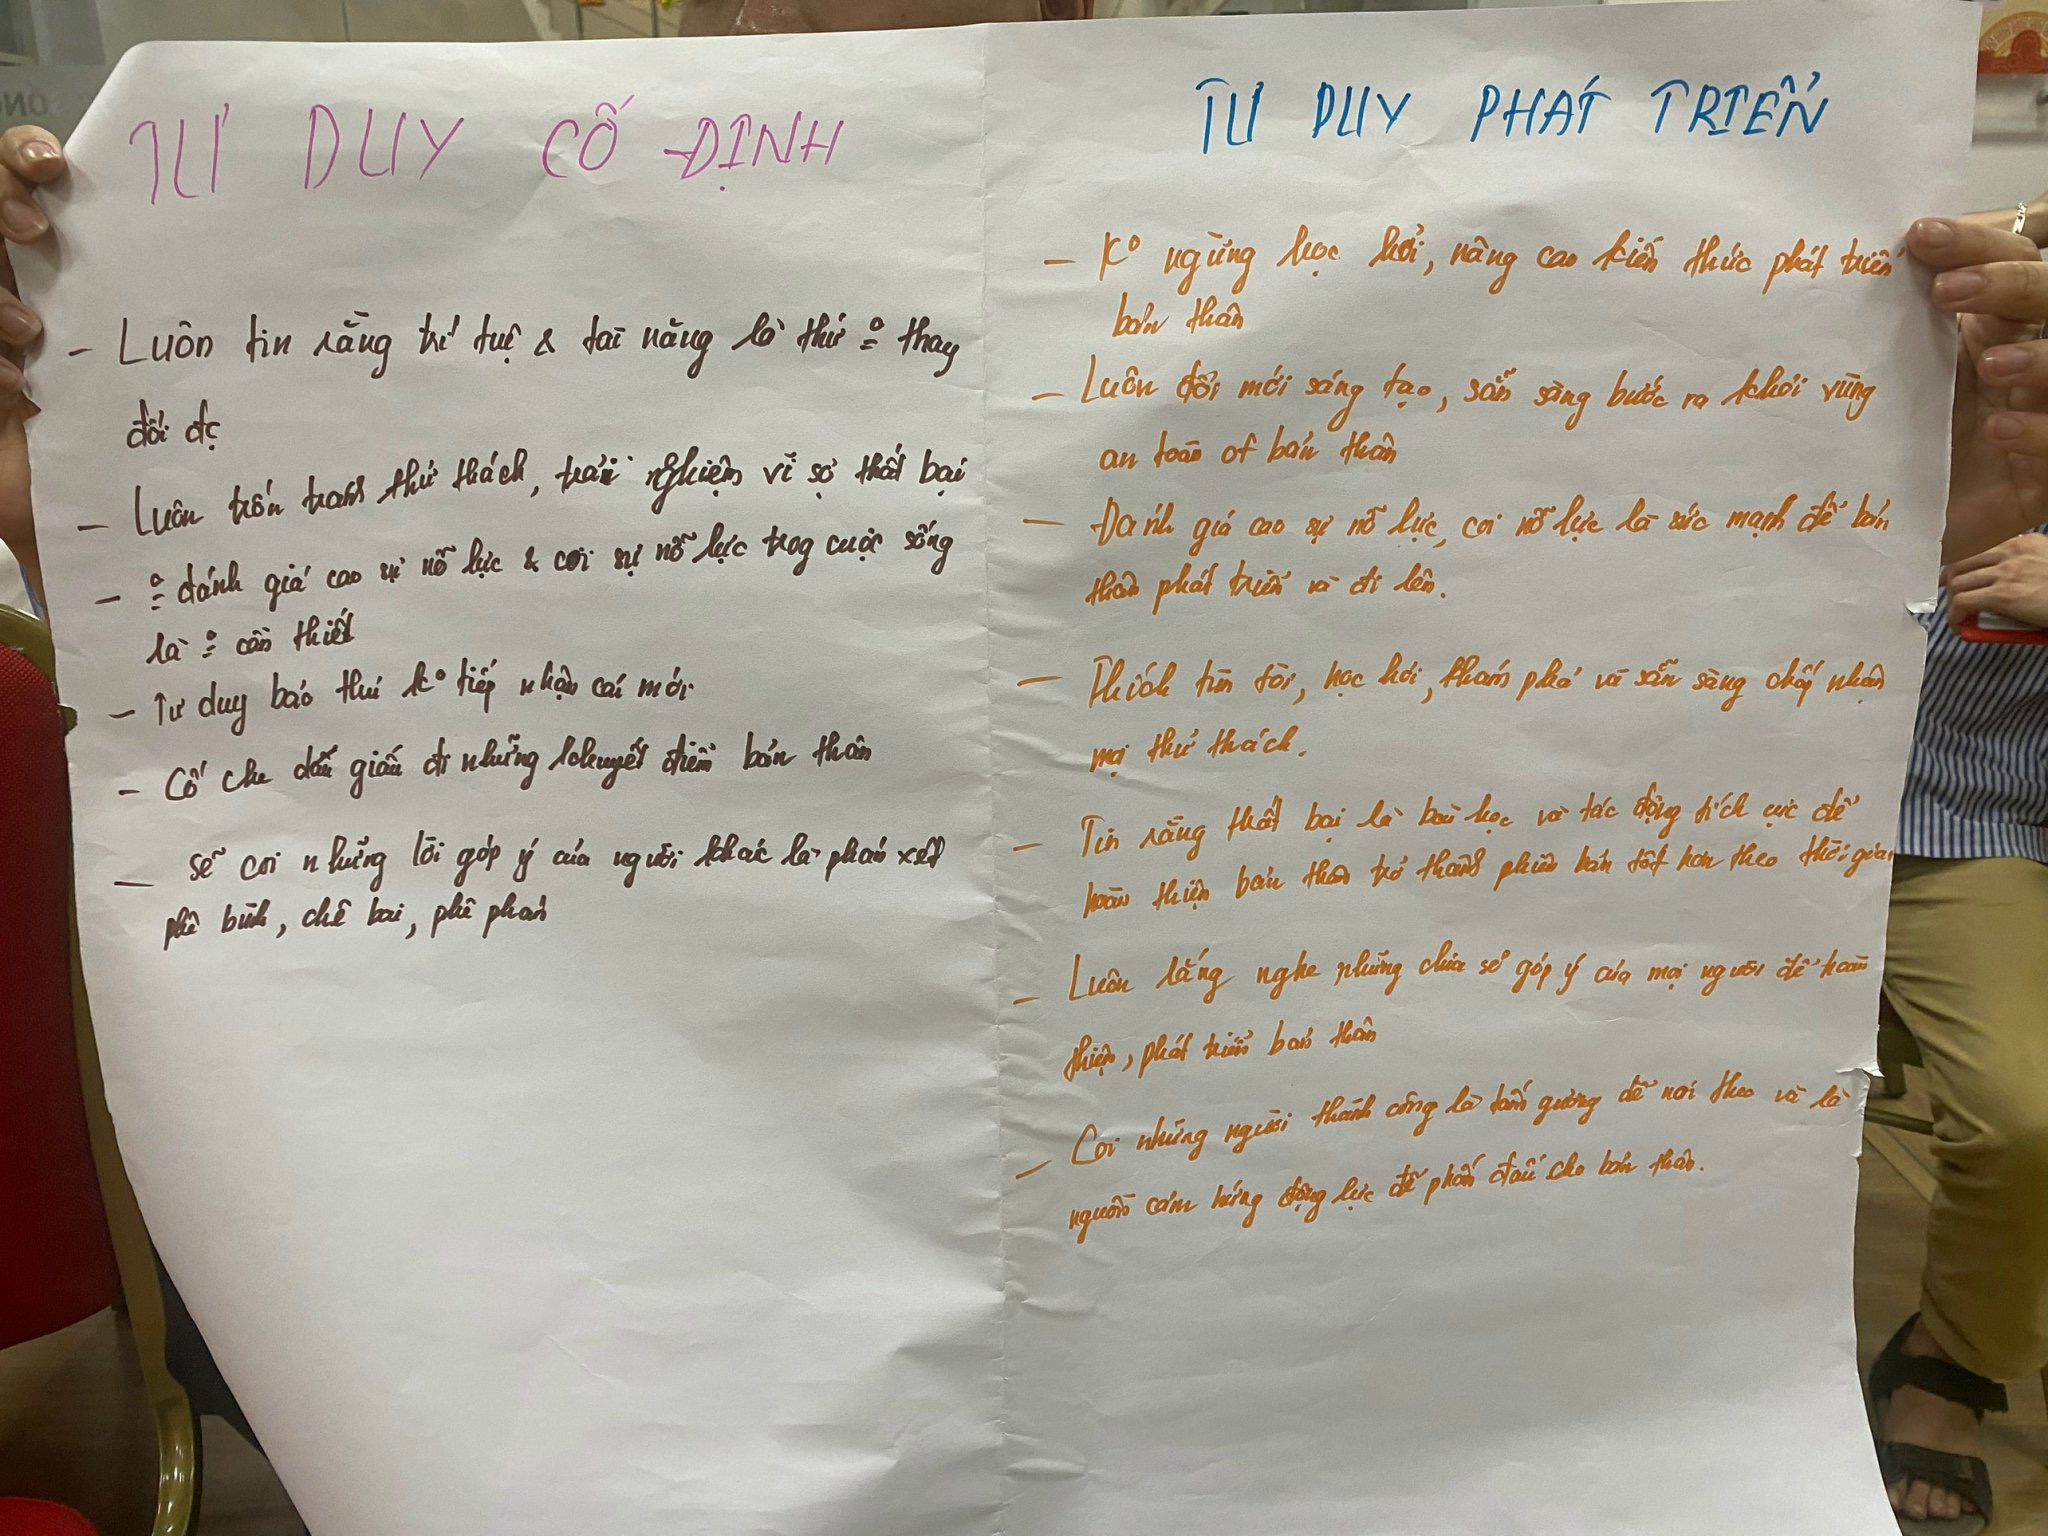 TƯ DUY CỐ ĐỊNH
- Luôn tin rằng trí tuệ & tài năng là thứ o= thay
đổi đc
- Luôn trốn tránh thử thách, trải nghiệm vì sợ thất bại
- o= đánh giá cao sự nỗ lực & coi sự nỗ lực trog cuộc sống
là o= cần thiết
- Tư duy bảo thủ ko tiếp nhận cái mới
- Cố che dấu giấu đi những khuyết điểm bản thân
- sẽ coi những lời góp ý của người khác là phán xét
phê bình, chê bai, phê phán
TƯ DUY PHÁT TRIỂN
- Ko ngừng học hỏi, nâng cao kiến thức phát triển
bản thân
- Luôn đổi mới sáng tạo, sẵn sàng bước ra khỏi vùng
an toàn of bản thân
- Đánh giá cao sự nỗ lực, coi nỗ lực là sức mạnh để bản
thân phát triển và đi lên.
- Thích tìm tòi, học hỏi, khám phá và sẵn sàng chấp nhận
mọi thử thách.
- Tin rằng thất bại là bài học và tác động tích cực để
hoàn thiện bản thân trở thành phiên bản tốt hơn theo thời gian
- Luôn lắng nghe những chia sẻ góp ý của mọi người để hoàn
thiện, phát triển bản thân
- Coi những người thành công là tấm gương để noi theo và là
nguồn cảm hứng động lực để phấn đấu cho bản thân.